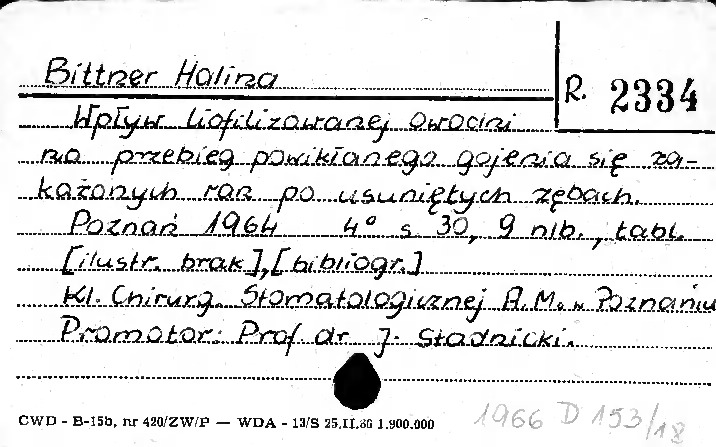 Bittner Halina
R. 2334
Wpływ liofilizowanej owodni
na przebieg powikłanego gojenia się za-
każonych ran po usuniętych zębach.
Poznań 1964 4° s 30, 9 nlb., tabl.
[ilustr. brak],[bibliogr.]
Kl. Chirurg. Stomatologicznej A.M. w Poznaniu
Promotor: Prof dr J. Stadnicki.
CWD - B-15b, nr 420/ZW/P — WDA - 13/S 25.II.66 1.900.000
1966 D 153/18